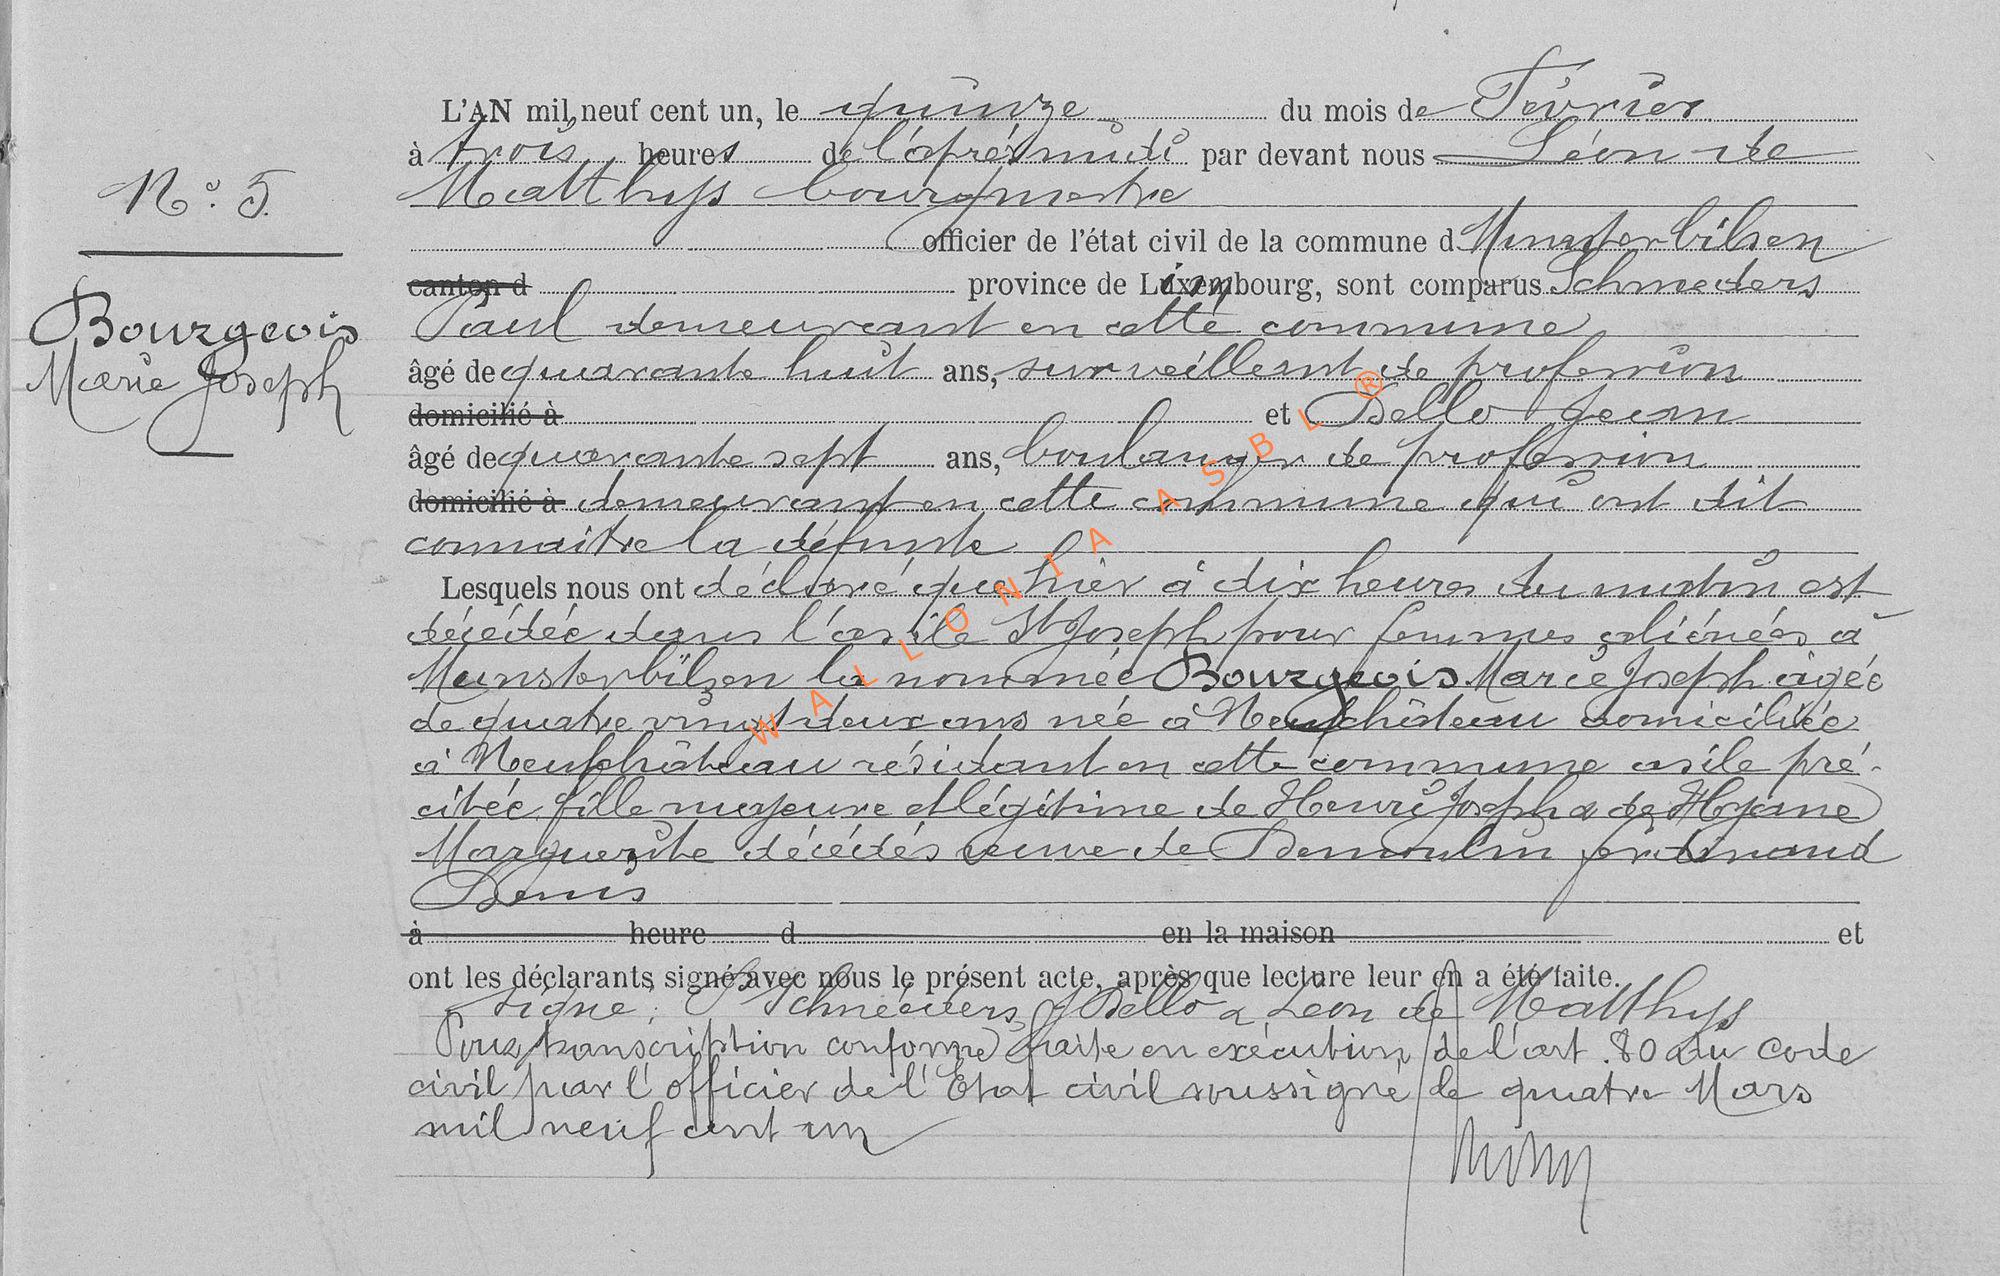 N° 5.
Bourgeois
Marie Joseph
L'AN mil neuf cent un, le quinze du mois de Février
à trois heures de l'après midi par devant nous Léon de
Matthys bourgmestre
officier de l'état civil de la commune d Munsterbilsen
canton d province de Limbourg, sont comparus Schneiders
Paul demeurant en cette commune
âgé de quarante huit ans, surveillant de profession
domicilié à et Dello Jean
âgé de quarante sept ans, boulanger de profession
domicilié à demeurant en cette commune qui ont dit
connaitre la défunte
Lesquels nous ont déclaré que hier à dix heures du matin est
décédée dans l'asile St Joseph pour femmes aliénées à
Munsterbilzen la nommée Bourgeois Marie Joseph âgée
de quatre vingt deux ans née à Neufchâteau domiciliée
à Neufchâteau résidant en cette commune asile pré-
citée, fille majeure et légitime de Henri Joseph & de
Marguerite décédés veuve de Demoulin Ferdinand
Denis
à heure d en la maison et
ont les déclarants signé avec nous le présent acte, après que lecture leur en a été faite.
Signé: P Schneiders, J Dello & Léon de Matthys
Pour transcription conforme faite en exécution de l'art. 80 du code
civil par l'officier de l'Etat civil soussigné le quatre Mars
mil neuf cent un
WALLONIA ASBL ®